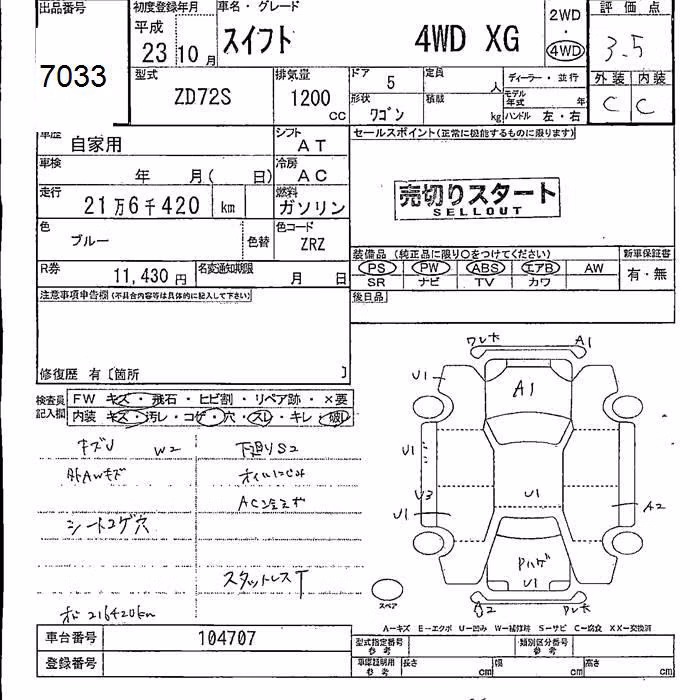 出品番号
7033
初度登録年月
平成
23 10 月
車名・グレード
スイフト 4WD XG
2WD
・
4WD
評価点
3.5
外装 内装
C C
型式
ZD72S
排気量
1200
cc
ドア 5
定員 人
形状 ワゴン
積載 kg
ディーラー・並行
モデル年式 年
ハンドル 左・右
車歴 自家用
シフト AT
車検 年 月( 日)
冷房 AC
走行 21万6千420 km
燃料 ガソリン
色 ブルー 色替
色コード ZRZ
R券 11,430 円
名変通知期限 月 日
セールスポイント(正常に機能するものに限ります)
売切りスタート
SELLOUT
装備品 (純正品に限り○をつけてください)
PS PW ABS エアB AW
SR ナビ TV カワ
新車保証書
有・無
後日品
注意事項申告欄(不具合内容等は具体的に記入して下さい)
修復歴 有〔箇所 〕
検査員記入欄
FW キズ・飛石・ヒビ割・リペア跡・×要
内装 キズ・汚レ・コゲ・穴・スレ・キレ・破レ
キズU W2
下廻りS2
外AWキズ
オイルにじみ
AC冷えず
シートコゲ穴
スタットレスT
216420km
ワレ大 A1
U1
A1
U1
U3
U1
U1
A2
Pハゲ
U1
スペア
A-キズ E-エクボ U-凹み W-補修跡 S-サビ C-腐食 XX-交換済
車台番号 104707
登録番号
型式指定番号 参考
類別区分番号 参考
車庫証明用 参考 長さ cm 幅 cm 高さ cm